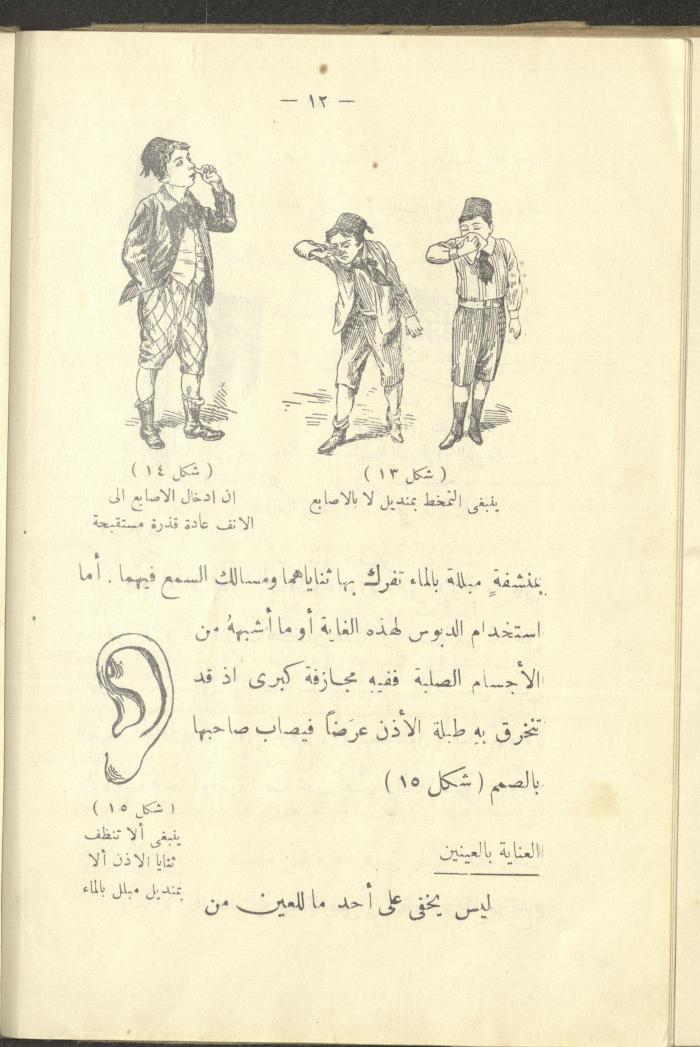 — ١٢ —
( شكل ١٣ )
ينبغى التمخط بمنديل لا بالاصابع
( شكل ١٤ )
ان ادخال الاصابع الى
الانف عادة قذرة مستقبحة
بمنشفةٍ مبللة بالماء تفرك بها ثناياهما ومسالك السمع فيهما . أما
استخدام الدبوس لهذه الغاية أو ما أشبههُ من
الأجسام الصلبة ففيهِ مجازفة كبرى اذ قد
تنخرق بهِ طبلة الأذن عرَضاً فيصاب صاحبها
بالصمم ( شكل ١٥ )
( شكل ١٥ )
ينبغى ألا تنظف
ثنايا الاذن ألا
بمنديل مبلل بالماء
العناية بالعينين
ليس يخفى على أحد ما للعين من